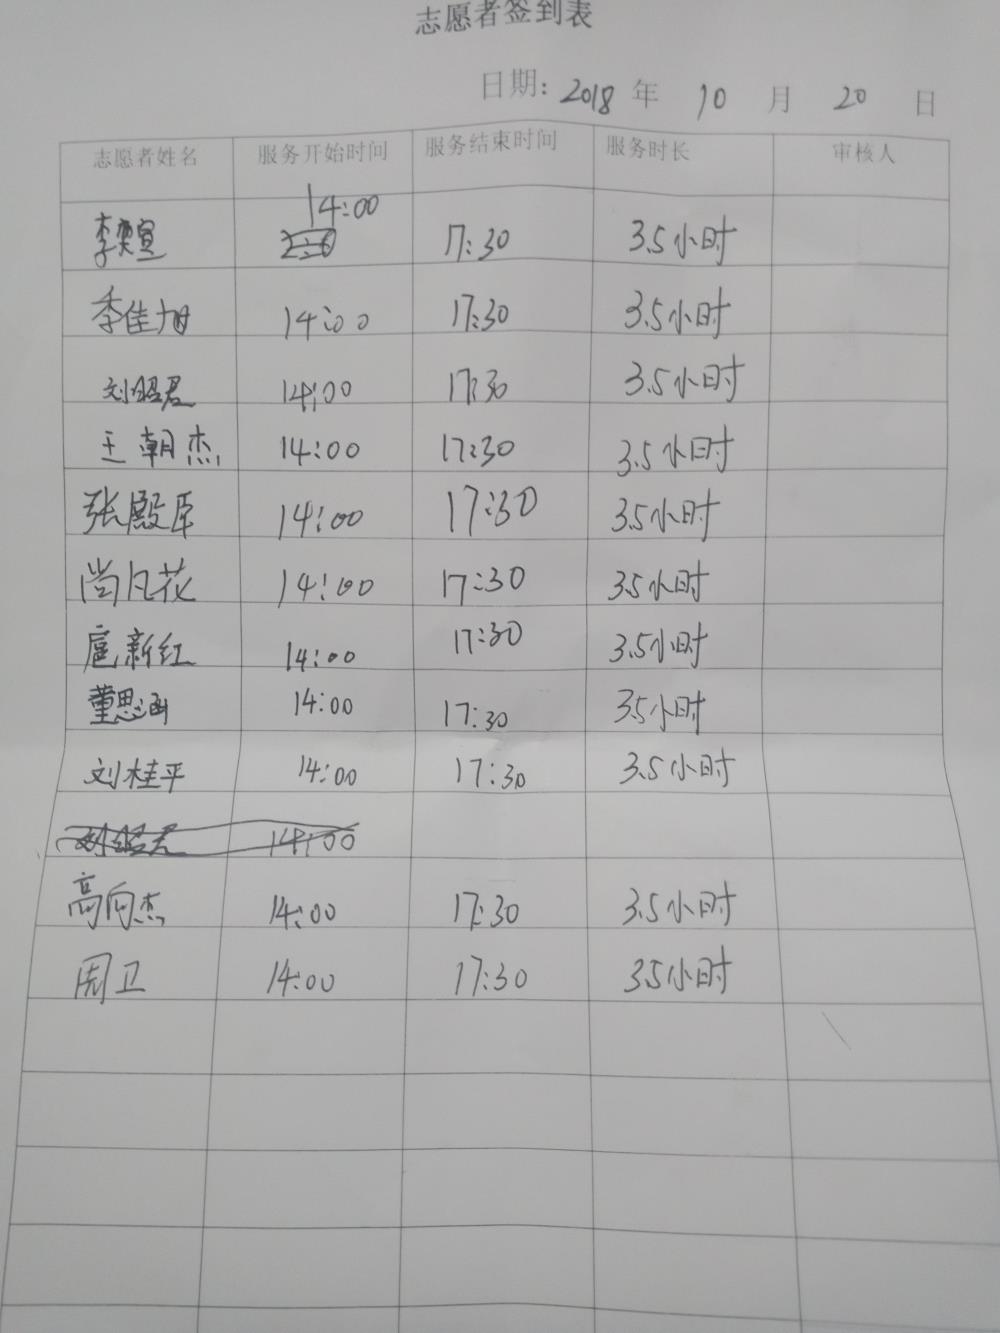 志愿者签到表
日期: 2018 年 10 月 20 日
志愿者姓名 服务开始时间 服务结束时间 服务时长 审核人
李奕萱 14:00 17:30 3.5小时
季佳旭 14:00 17:30 3.5小时
刘昭君 14:00 17:30 3.5小时
王朝杰 14:00 17:30 3.5小时
张殿臣 14:00 17:30 3.5小时
尚凡花 14:00 17:30 3.5小时
扈新红 14:00 17:30 3.5小时
董思涵 14:00 17:30 3.5小时
刘桂平 14:00 17:30 3.5小时
刘昭君 14:00
高向杰 14:00 17:30 3.5小时
周卫 14:00 17:30 3.5小时